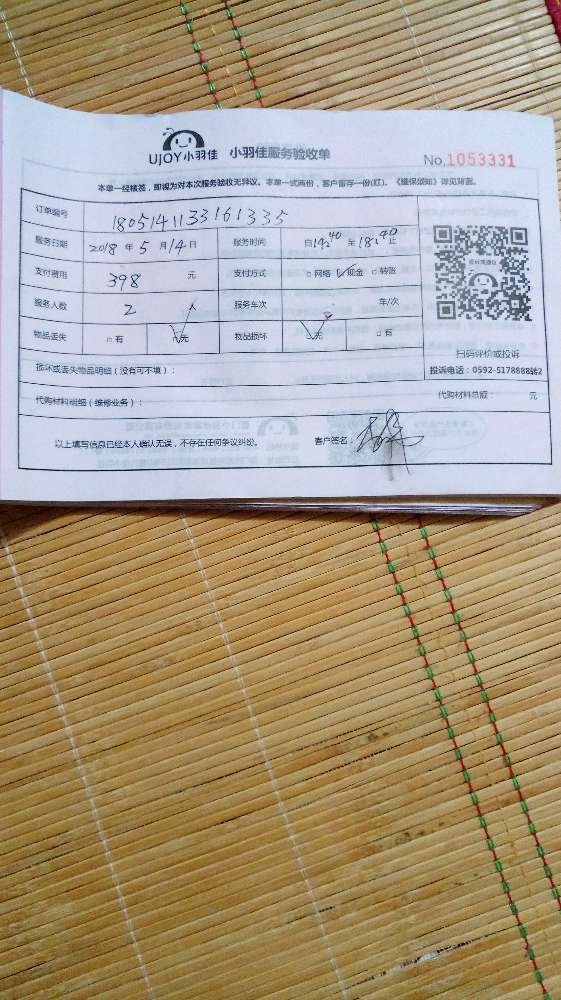 UJOY小羽佳 小羽佳服务验收单 No.1053331
本单一经核签，即视为对本次服务验收无异议。本单一式两份，客户留存一份(红)。《维保须知》详见背面。
订单编号 180514113316133​5
服务日期 2018 年 5 月 14 日 服务时间 自14:40 至 18:40止
支付费用 398 元 支付方式 □网络 ☑现金 □转账
服务人数 2 人 服务车次 车/次
物品丢失 □有 ☑无 物品损坏 ☑无 □有
扫码评价或投诉
投诉电话：0592-5178888转2
损坏或丢失物品明细（没有可不填）：
代购材料明细（维修业务）： 代购材料总额： 元
以上填写信息已经本人确认无误，不存在任何争议纠纷。 客户签名：